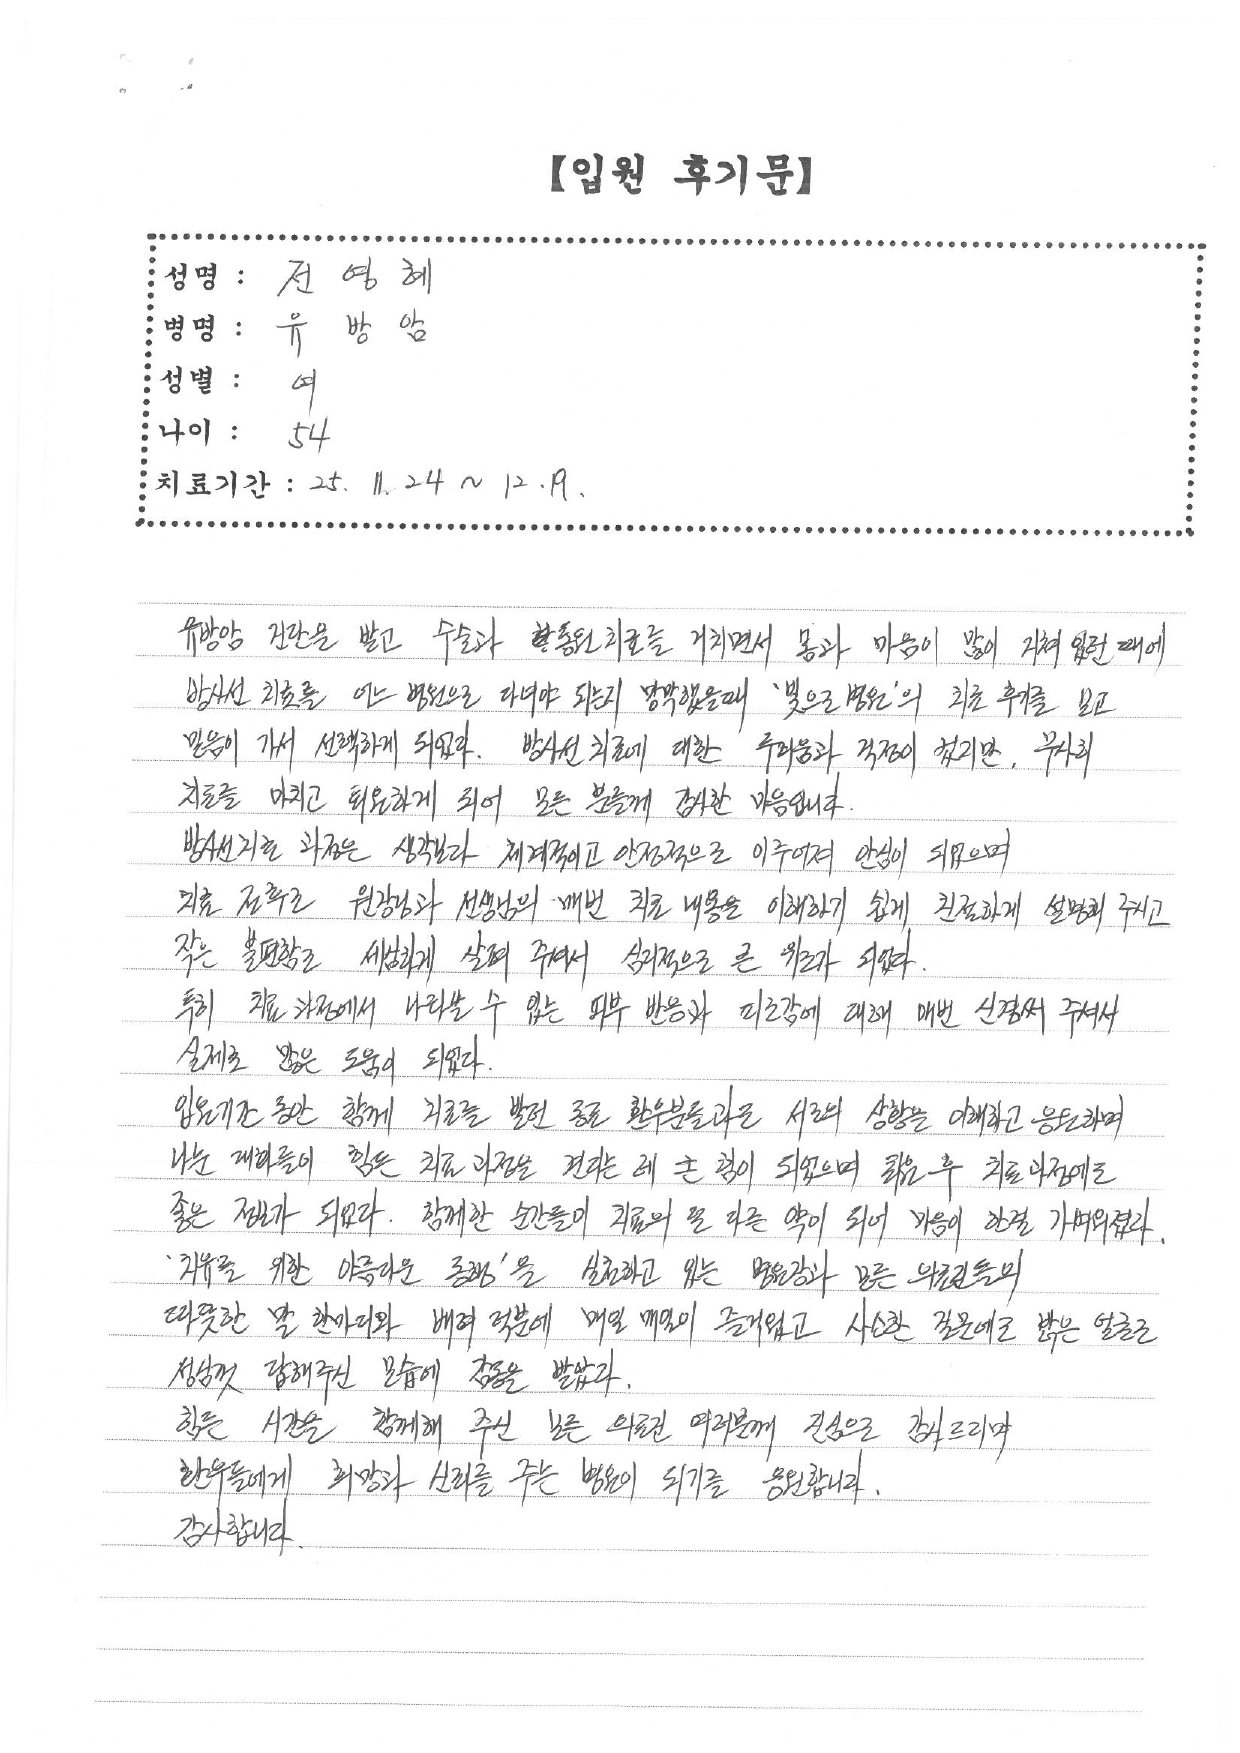 【입원 후기문】
성명 : 전영혜
병명 : 유방암
성별 : 여
나이 : 54
치료기간 : 25. 11. 24 ~ 12. 19.
유방암 진단을 받고 수술과 항동원치료를 거치면서 몸과 마음이 많이 지쳐 있던 때에
방사선 치료를 어느 병원으로 다녀야 되는지 막막했을때 '빛으로병원'의 치료 후기를 보고
믿음이 가서 선택하게 되었다. 방사선 치료에 대한 두려움과 걱정이 컸지만, 무사히
치료를 마치고 퇴원하게 되어 모든 분들께 감사한 마음입니다.
방사선치료 과정은 생각보다 체계적이고 안정적으로 이루어져 안심이 되었으며
치료 전후로 원장님과 선생님의 매번 치료 내용을 이해하기 쉽게 친절하게 설명해 주시고
작은 불편함도 세심하게 살펴 주셔서 심리적으로 큰 위로가 되었다.
특히 치료 과정에서 나타날 수 있는 피부 반응과 피로감에 대해 매번 신경써 주셔서
실제로 많은 도움이 되었다.
입원기간 동안 함께 치료를 받던 동료 환우분들과도 서로의 상황을 이해하고 응원하며
나눈 대화들이 힘든 치료 과정을 견디는 데 큰 힘이 되었으며 퇴원 후 치료 과정에도
좋은 정보가 되었다. 함께한 순간들이 치료의 또 다른 약이 되어 마음이 한결 가벼워졌다.
'치유를 위한 아름다운 동행'을 실천하고 있는 병원장과 모든 의료진들의
따뜻한 말 한마디와 배려 덕분에 매일 매일이 즐거웠고 사소한 질문에도 밝은 얼굴로
성심껏 답해주신 모습에 감동을 받았다.
힘든 시간을 함께해 주신 모든 의료진 여러분께 진심으로 감사드리며
환우들에게 희망과 신뢰를 주는 병원이 되기를 응원합니다.
감사합니다.